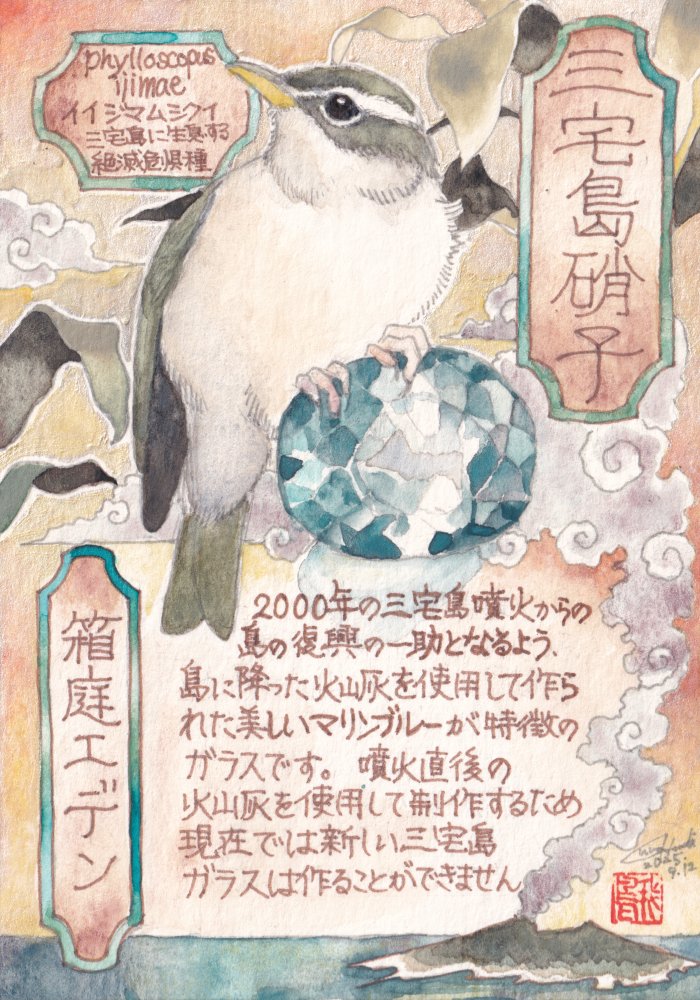 phylloscopus
ijimae
イイジマムシクイ
三宅島に生息する
絶滅危惧種
三宅島硝子
2000年の三宅島噴火からの
島の復興の一助となるよう、
島に降った火山灰を使用して作ら
れた美しいマリンブルーが特徴の
ガラスです。噴火直後の
火山灰を使用して制作するため
現在では新しい三宅島
ガラスは作ることができません
箱庭エデン
2025.
9.12